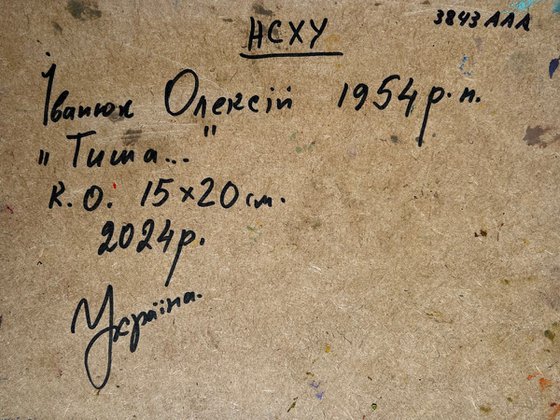 НСХУ
3843 ААА
Іванюк Олексій 1954 р.н.
"Тиша..."
к.о. 15×20 см.
2024р.
Україна.